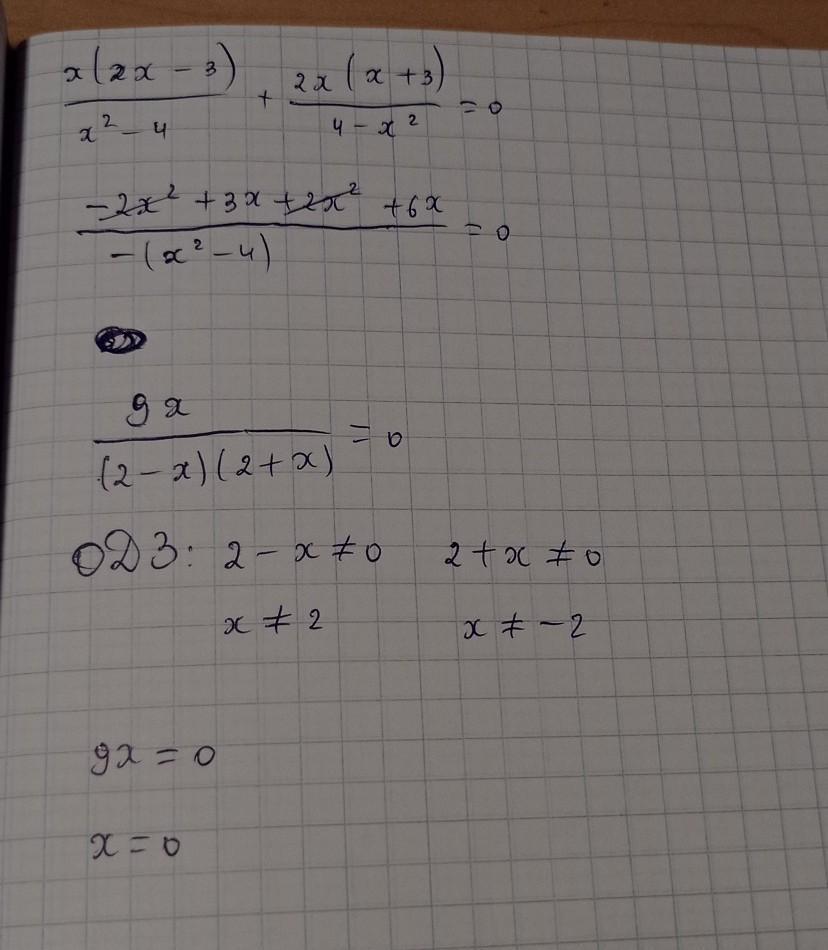 x(2x - 3)/(x² - 4) + 2x(x + 3)/(4 - x²) = 0
(-2x² + 3x + 2x² + 6x)/(-(x² - 4)) = 0
9x/((2 - x)(2 + x)) = 0
ОДЗ: 2 - x ≠ 0 2 + x ≠ 0
x ≠ 2 x ≠ -2
9x = 0
x = 0